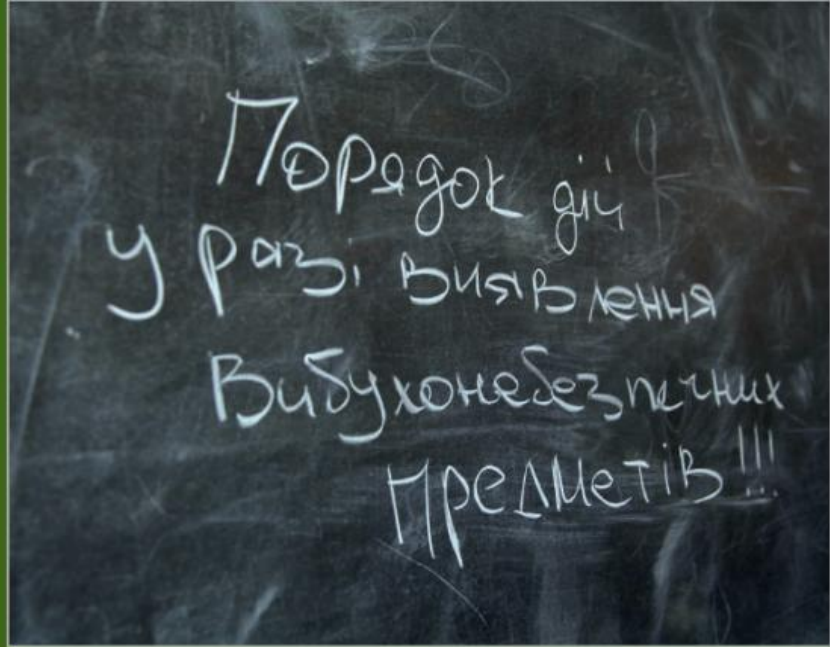 Порядок дій
у разі виявлення
Вибухонебезпечних
предметів!!!